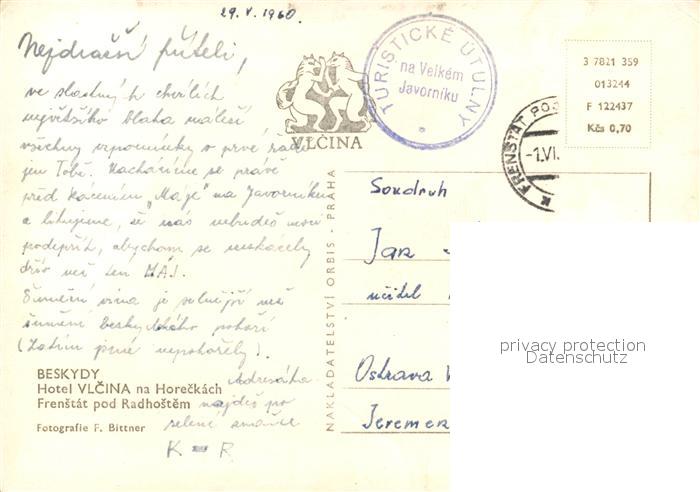 29. V. 1960.
Nejdražší příteli,
ve slastných chvílích
největšího blaha naleží
všechny vzpomínky v prvé řadě
jen Tobě. Nacházíme se právě
před kácením „Máje" na Javorníku
a litujeme, že nás nebudeš moci
podepřít, abychom se neskácely
dřív než ten MÁJ.
Šumění vína je silnější než
šumění beskydského pohoří
(Zatím jsme nepohořely).
Adresáta
najdeš po
K = R
BESKYDY
Hotel VLČINA na Horečkách
Frenštát pod Radhoštěm
Fotografie F. Bittner
VLČINA
TURISTICKÉ ÚTULNY
na Velkém
Javorníku
NAKLADATELSTVÍ ORBIS - PRAHA
FRENŠTÁT POD
-1.VI.
3 7821 359
013244
F 122437
Kčs 0,70
Soudruh
Jan
učitel
Ostrava
Jeremen
privacy protection
Datenschutz